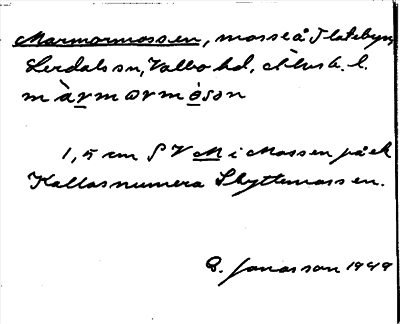 Marmormossen, mosse å Flateby,
Herdals sn, Valbo hd, Älvsb. l.
màrmormósən
1,5 cm S V M i Mossen på ek
Kallas numera Skyttemossen.
G. Jonasson 1949